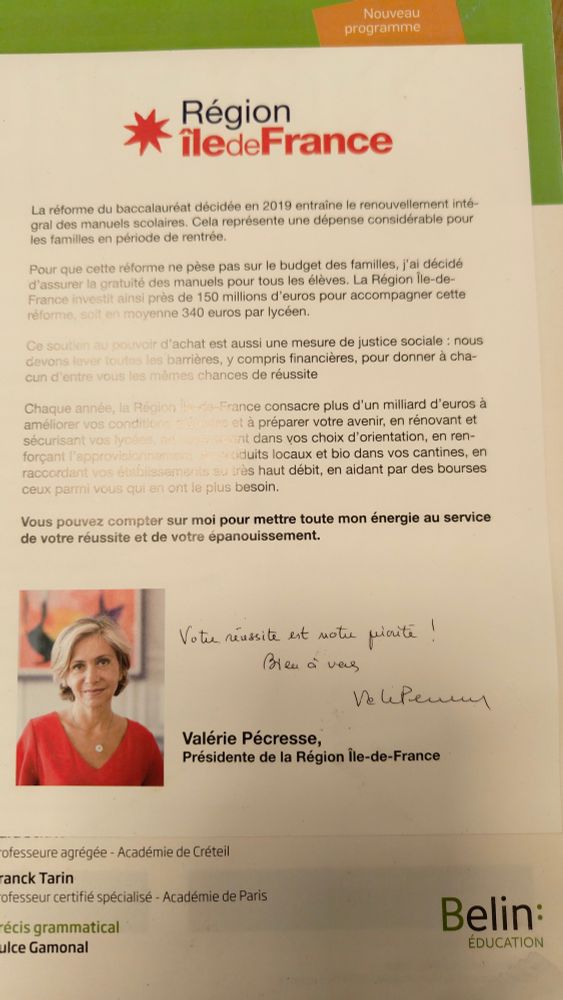 Nouveau
programme
Région
îledeFrance
La réforme du baccalauréat décidée en 2019 entraîne le renouvellement inté-
gral des manuels scolaires. Cela représente une dépense considérable pour
les familles en période de rentrée.
Pour que cette réforme ne pèse pas sur le budget des familles, j'ai décidé
d'assurer la gratuité des manuels pour tous les élèves. La Région Île-de-
France investit ainsi près de 150 millions d'euros pour accompagner cette
réforme, soit en moyenne 340 euros par lycéen.
Ce soutien au pouvoir d'achat est aussi une mesure de justice sociale : nous
devons lever toutes les barrières, y compris financières, pour donner à cha-
cun d'entre vous les mêmes chances de réussite
Chaque année, la Région Île-de-France consacre plus d'un milliard d'euros à
améliorer vos conditions et à préparer votre avenir, en rénovant et
sécurisant vos lycées, en dans vos choix d'orientation, en ren-
forçant l'approvisionnement produits locaux et bio dans vos cantines, en
raccordant vos établissements au très haut débit, en aidant par des bourses
ceux parmi vous qui en ont le plus besoin.
Vous pouvez compter sur moi pour mettre toute mon énergie au service
de votre réussite et de votre épanouissement.
Votre réussite est notre priorité !
Bien à vous
Valérie Pécresse,
Présidente de la Région Île-de-France
rofesseure agrégée - Académie de Créteil
ranck Tarin
rofesseur certifié spécialisé - Académie de Paris
récis grammatical
ulce Gamonal
Belin:
ÉDUCATION